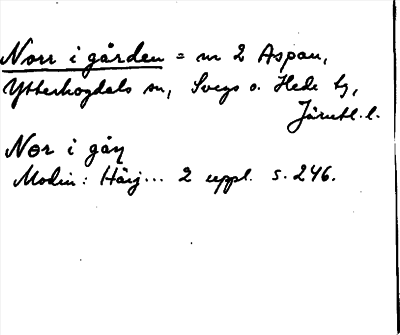 Norr i gården = nr 2 Aspan,
Ytterhogdals sn, Svegs o. Hede tg,
Jämtl. l.
Nor i gåɲ
Modin: Härj... 2 uppl. s. 246.